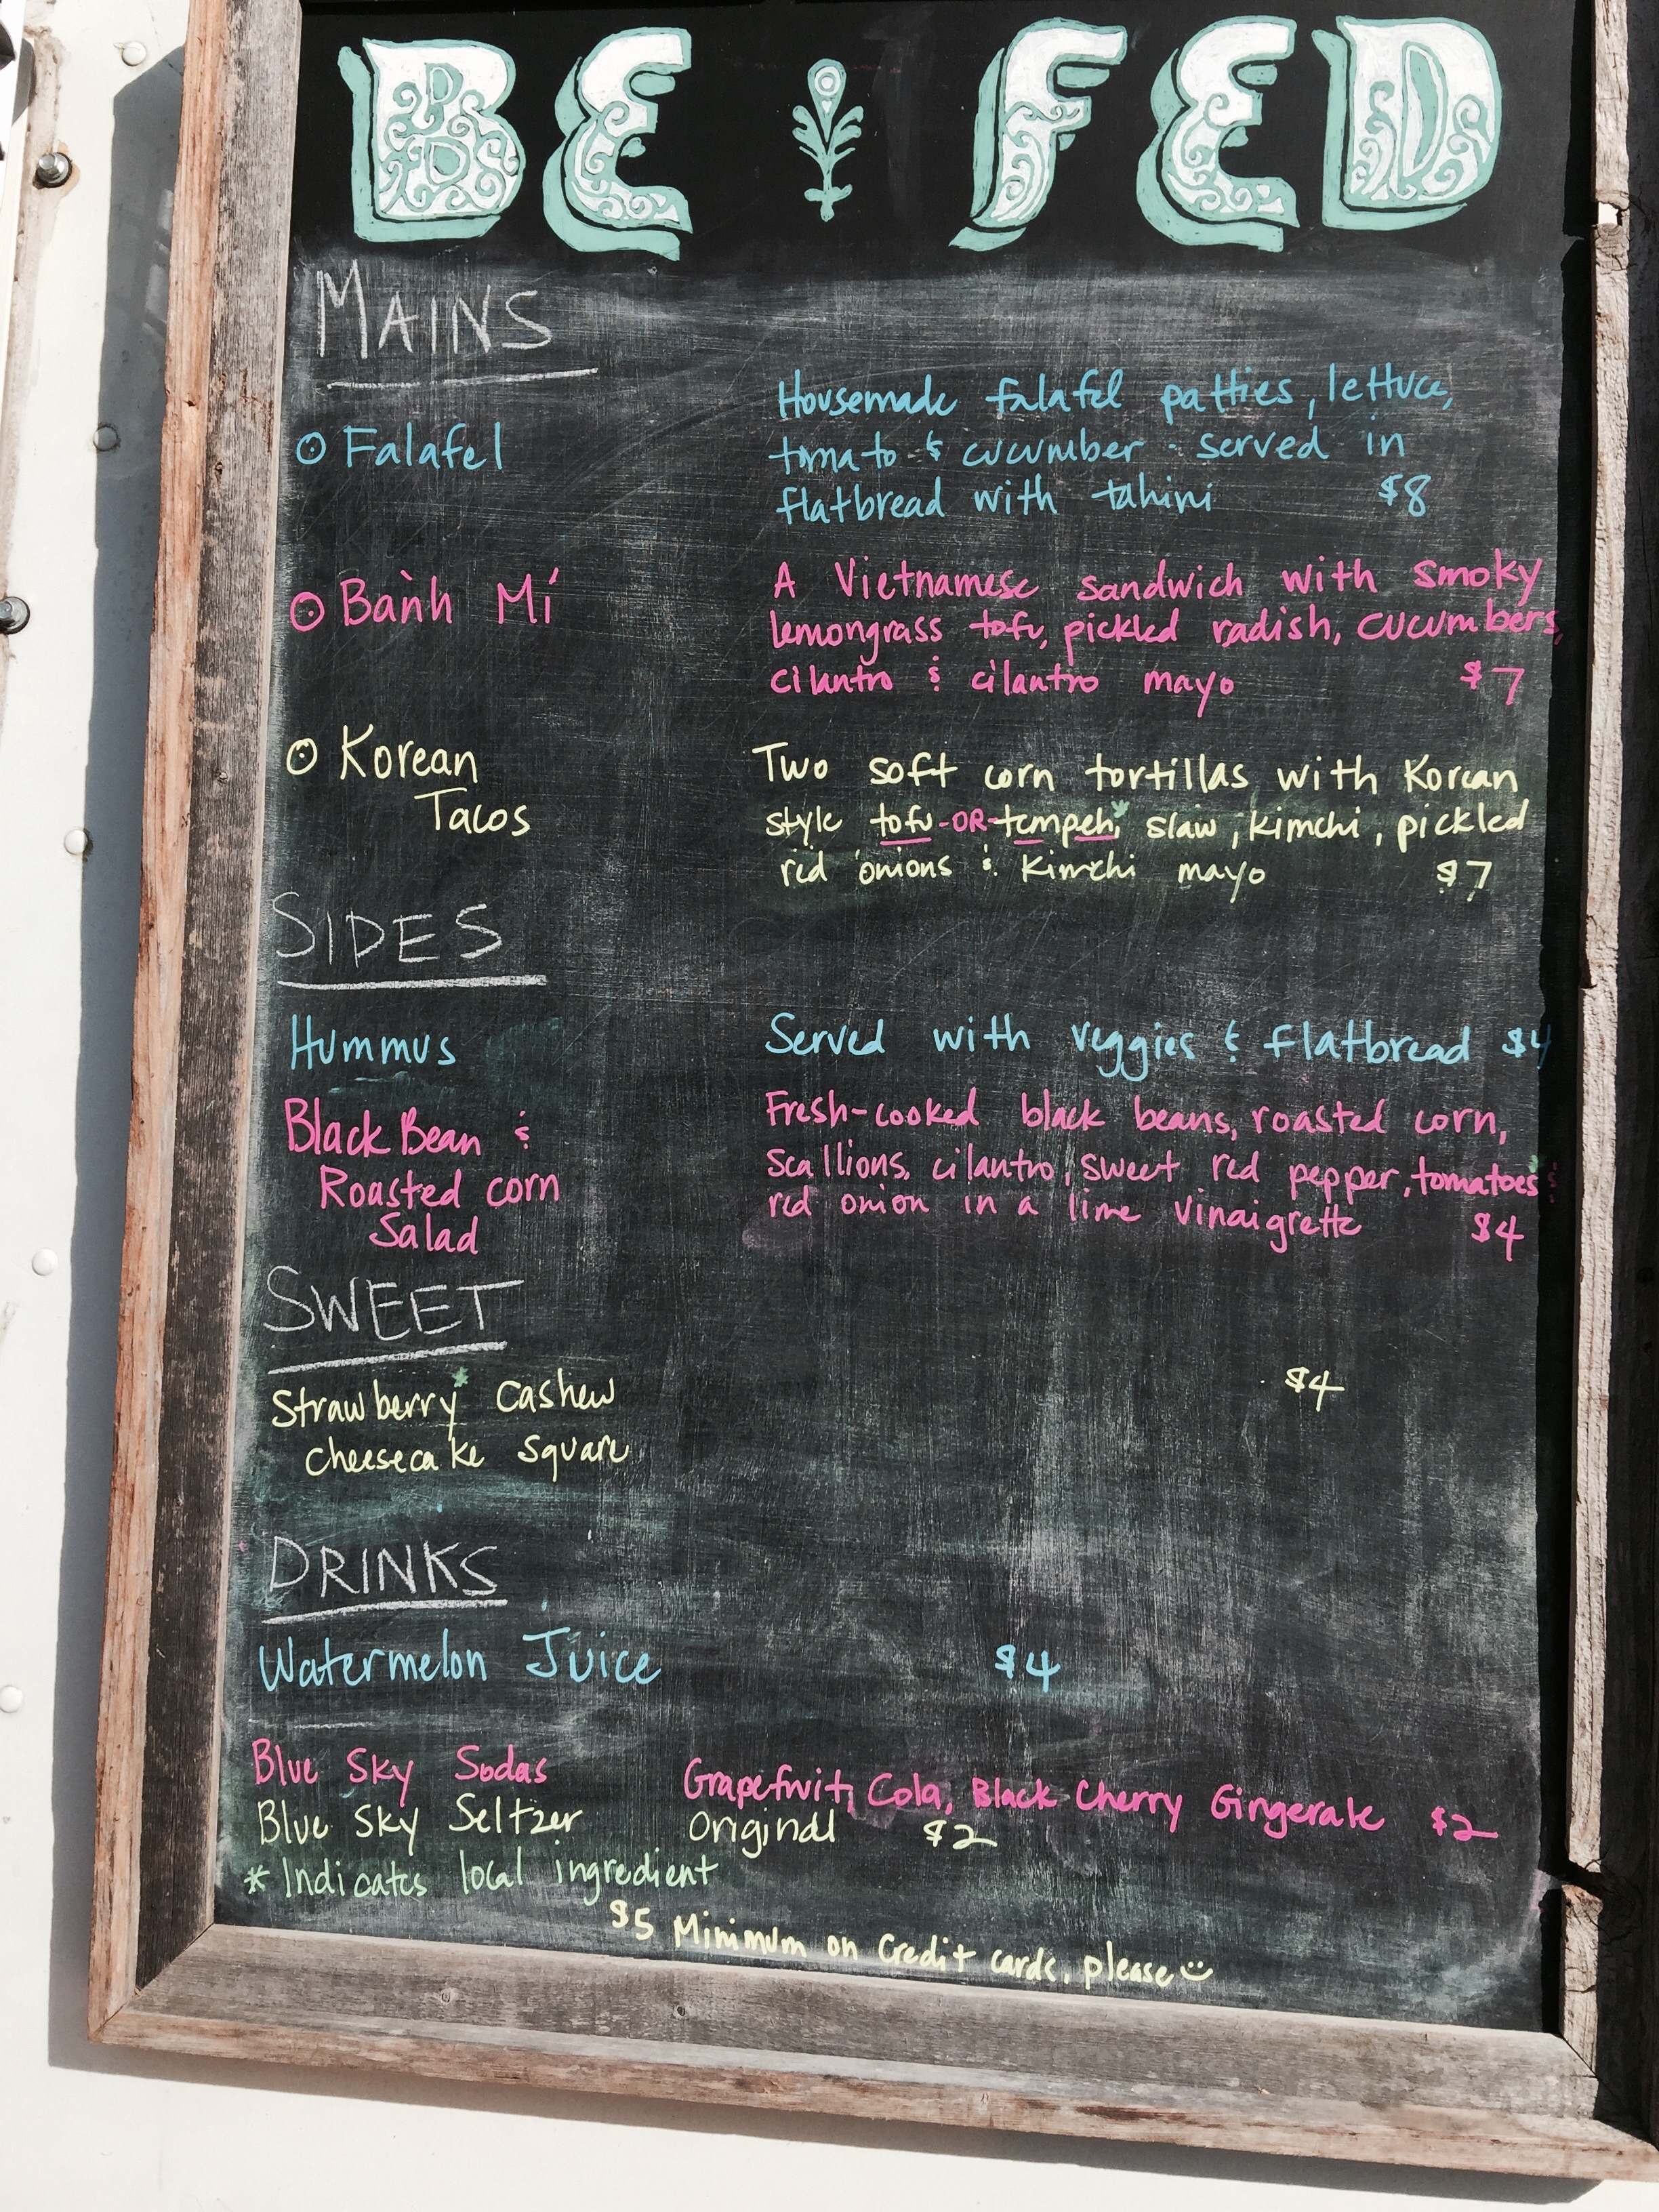 BE FED
MAINS
Falafel
Housemade falafel patties, lettuce,
tomato & cucumber - served in
flatbread with tahini $8
Bành Mí
A Vietnamese sandwich with smoky
lemongrass tofu, pickled radish, cucumbers,
cilantro & cilantro mayo $7
Korean
Tacos
Two soft corn tortillas with Korean
style tofu -OR- tempeh*, slaw, kimchi, pickled
red onions & kimchi mayo $7
SIDES
Hummus
Served with veggies & flatbread $4
Black Bean &
Roasted corn
Salad
Fresh-cooked black beans, roasted corn,
scallions, cilantro, sweet red pepper, tomatoes* &
red onion in a lime vinaigrette $4
SWEET
Strawberry* Cashew
Cheesecake Square
$4
DRINKS
Watermelon Juice $4
Blue Sky Sodas Grapefruit, Cola, Black Cherry Gingerale $2
Blue Sky Seltzer Original $2
* Indicates local ingredient
$5 Minimum on Credit cards, please